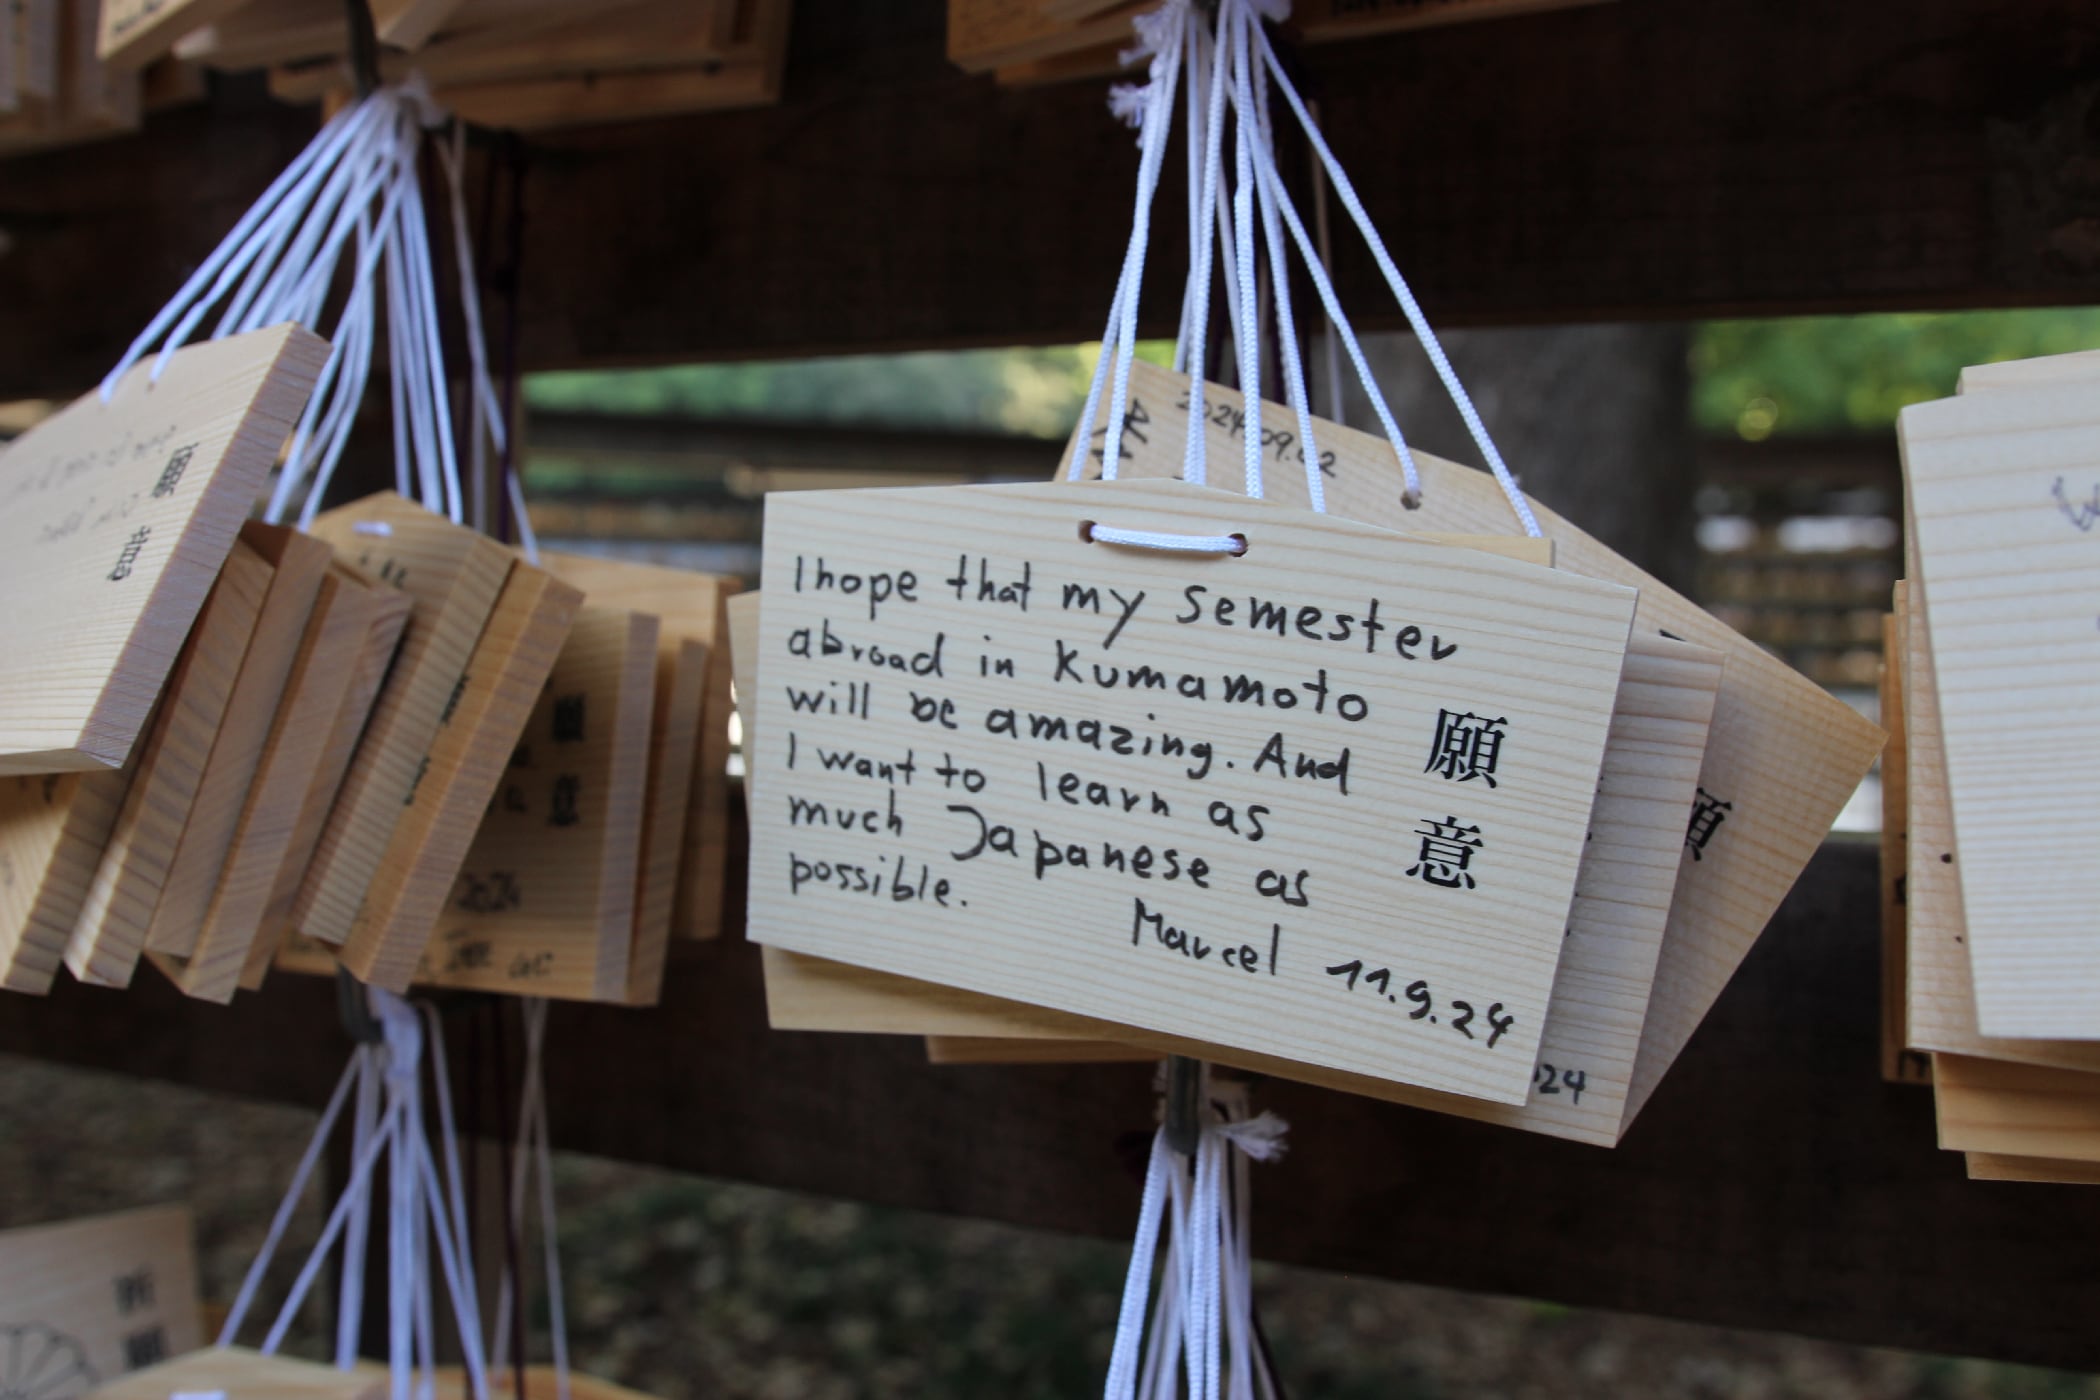 2024.09.02
I hope that my semester
abroad in Kumamoto
will be amazing. And
I want to learn as
much Japanese as
possible.
Marcel 11.9.24
願意
願
24
願意
願意
2024
祈願